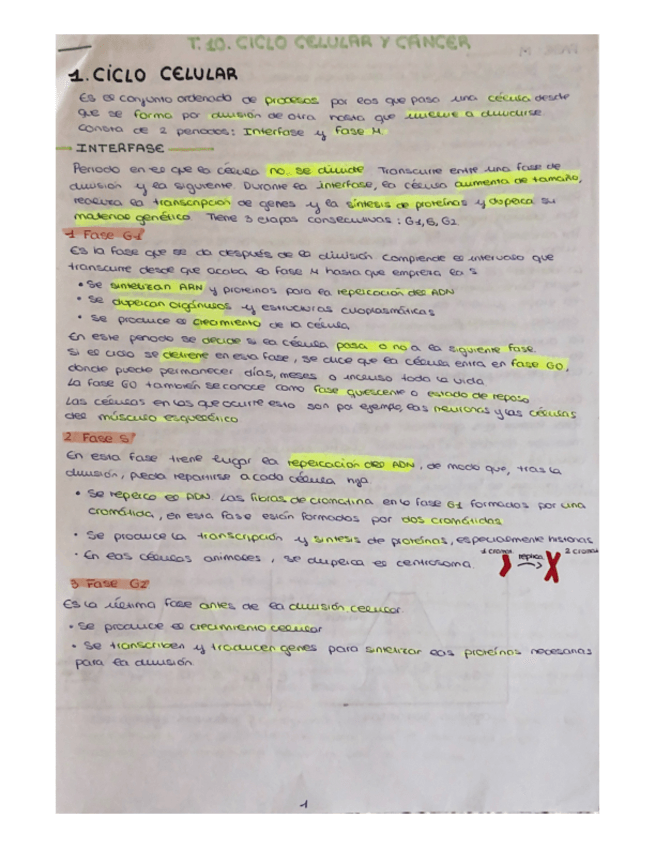 T.10. CICLO CELULAR Y CÁNCER
1. CICLO CELULAR
Es el conjunto ordenado de procesos por los que pasa una célula desde
que se forma por división de otra hasta que vuelve a dividirse
Consta de 2 periodos: Interfase y Fase M.
INTERFASE
Periodo en el que la célula no se divide Transcurre entre una fase de
división y la siguiente. Durante la interfase, la célula aumenta de tamaño,
realiza la transcripción de genes y la síntesis de proteínas y duplica su
material genético Tiene 3 etapas consecutivas: G1, S, G2
1 Fase G1
Es la fase que se da después de la división. Comprende el intervalo que
transcurre desde que acaba la fase M hasta que empieza la S
• Se sintetizan ARN y proteínas para la replicación del ADN
• Se duplican orgánulos y estructuras citoplasmáticas
• Se produce el crecimiento de la célula
En este periodo se decide si la célula pasa o no a la siguiente fase.
Si el ciclo se detiene en esta fase, se dice que la célula entra en fase G0,
donde puede permanecer días, meses o incluso toda la vida
La fase G0 también se conoce como fase quiescente o estado de reposo
Las células en las que ocurre esto son por ejemplo, las neuronas y las células
del músculo esquelético
2 Fase S
En esta fase tiene lugar la replicación del ADN, de modo que, tras la
división, pueda repartirse a cada célula hija
• Se replica el ADN. Las fibras de cromatina en la fase G1 formados por una
cromátida, en esta fase están formados por dos cromátidas
• Se produce la transcripción y síntesis de proteínas, especialmente histonas
• En las células animales, se duplica el centrosoma.
1 cromát. réplica 2 cromát
3 Fase G2
Es la última fase antes de la división celular
• Se produce el crecimiento celular
• Se transcriben y traducen genes para sintetizar las proteínas necesarias
para la división
1